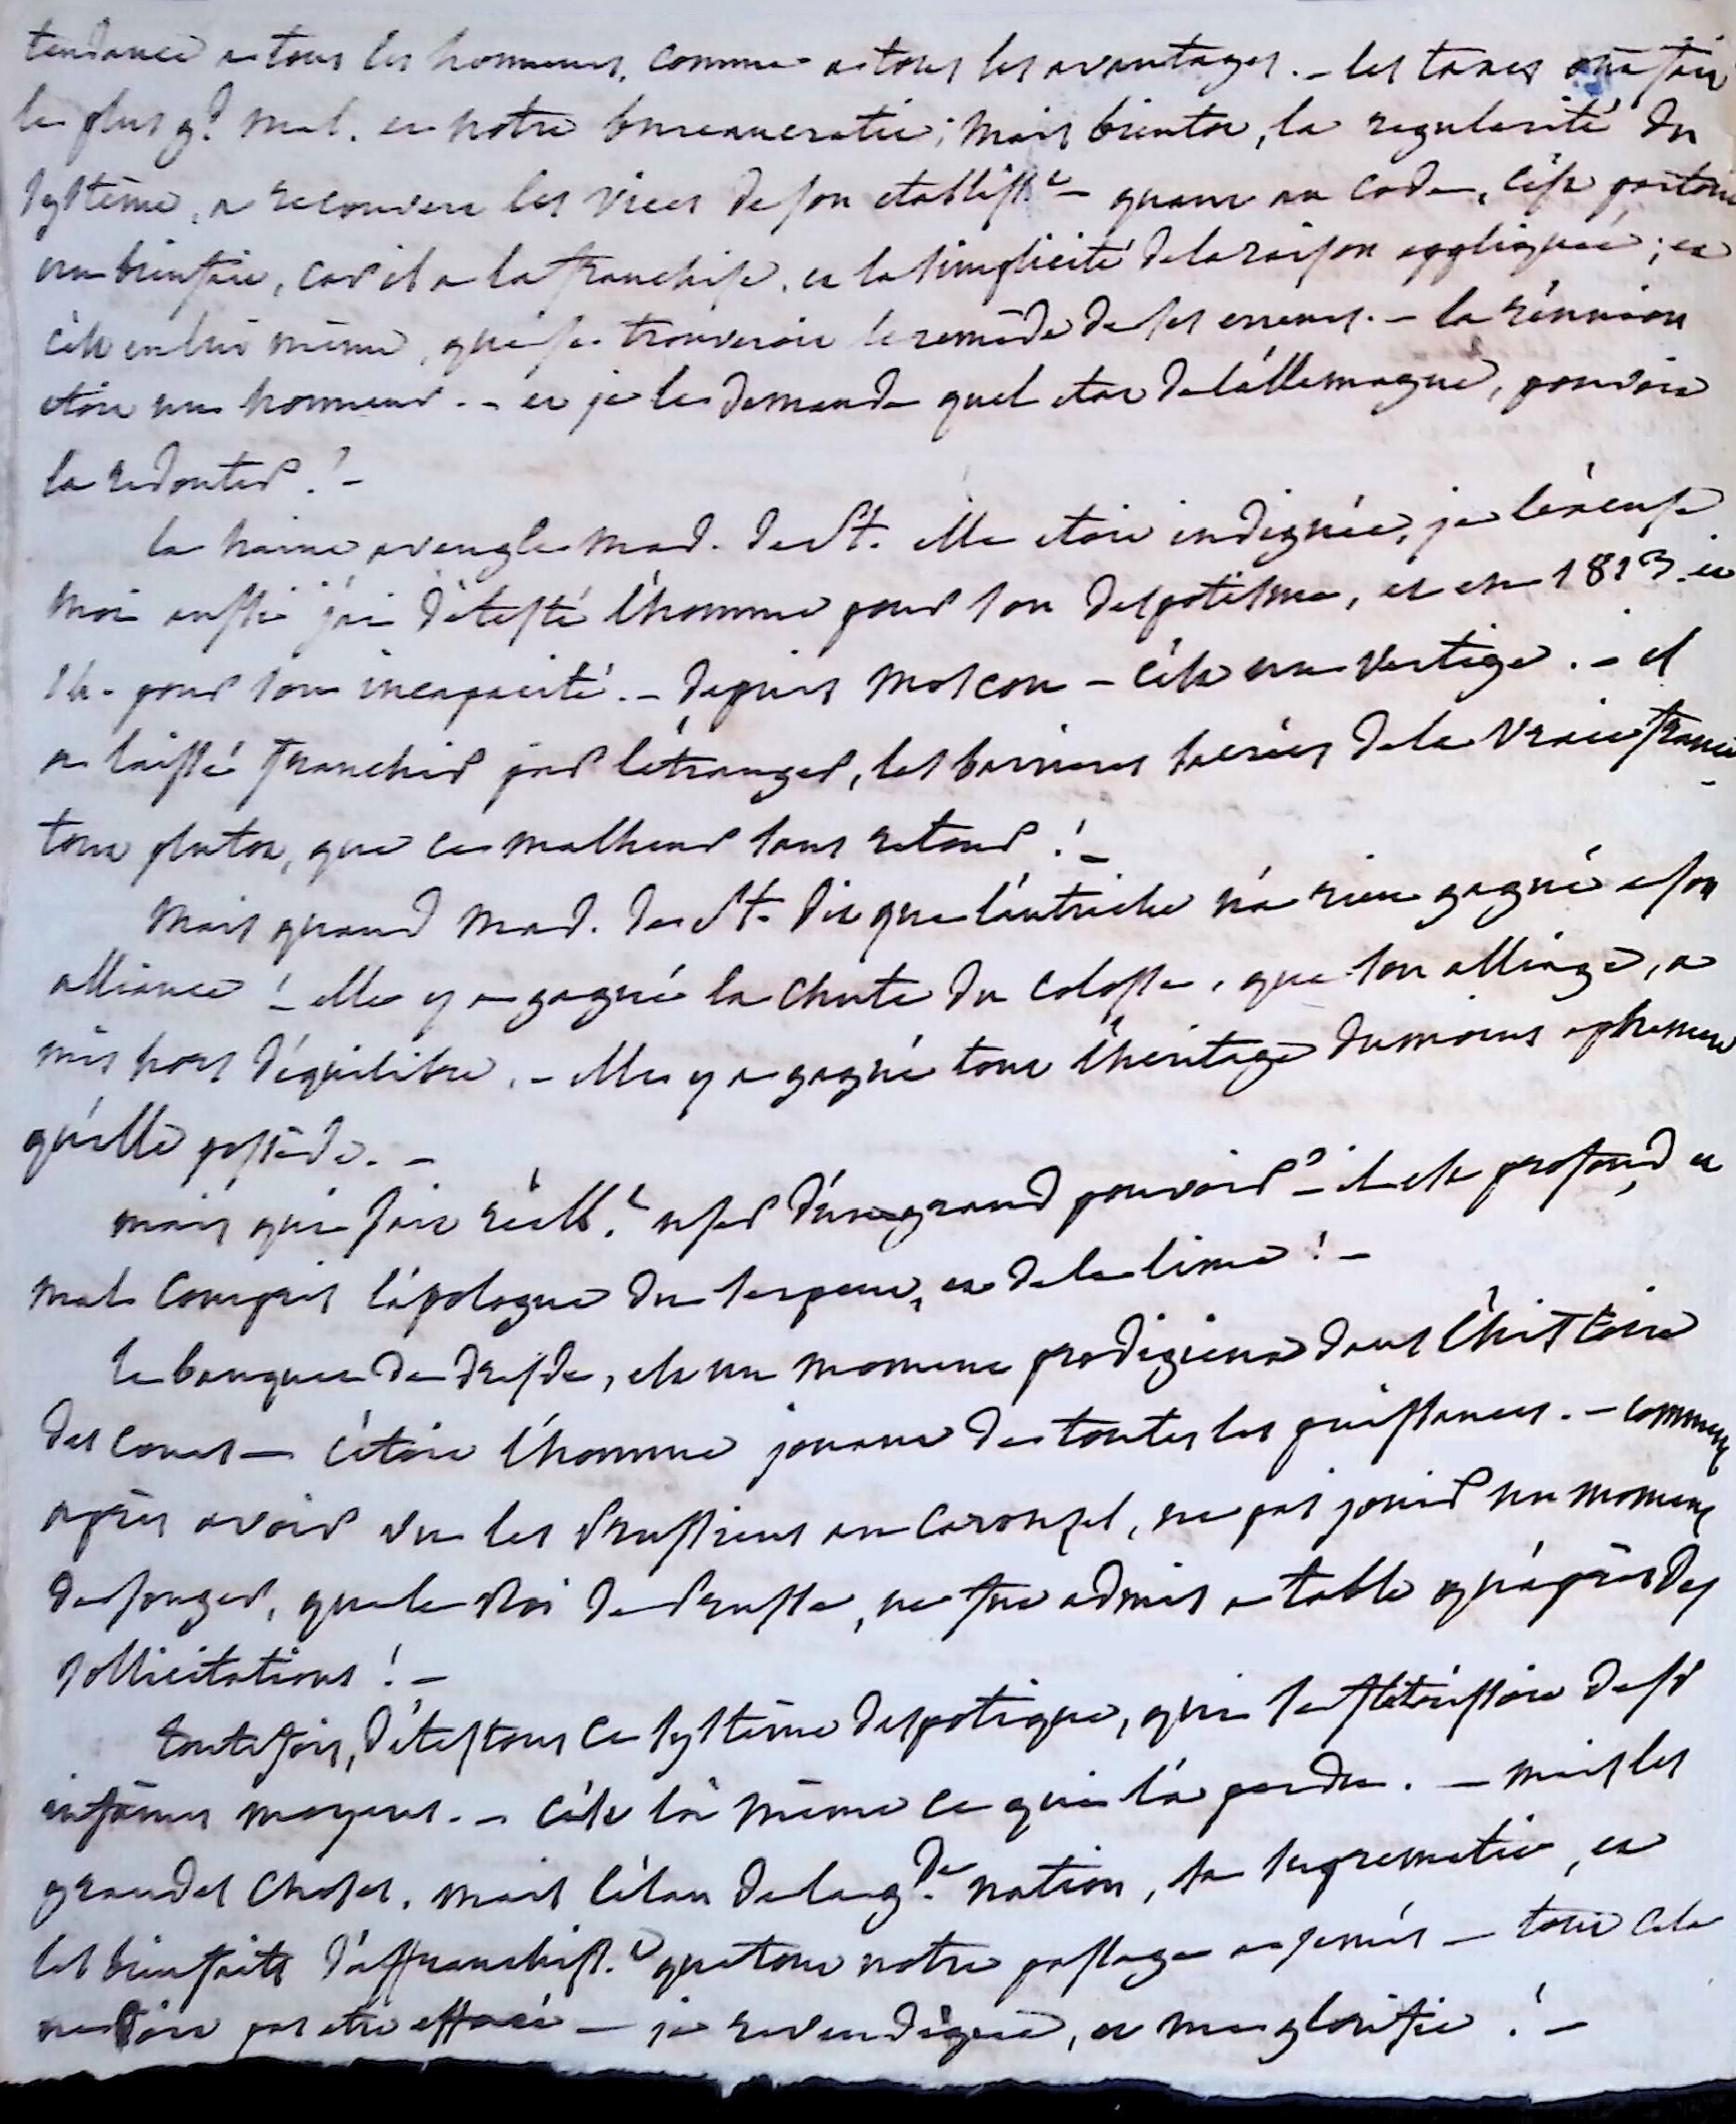 tendance a tous les honneurs, comme a tous les avantages. – les taxes ont fait
le plus gd mal. et notre bureaucratie; mais bientot, la regularité du
système, a recouvert les vices de son etablisst – quant au code, c'est partout
un bienfait, car il a la franchise, et la simplicité de la raison appliquée; et
c'est en lui même, que se trouveroit le remède de ses erreurs. – la réunion
etoit un honneur. – et je le demande quel etat de l'allemagne, pouvoit
la redouter! –
la haine aveugle mad. de St. elle etoit indignée, je l'excuse
moi aussi j'ai détesté l'homme pour son despotisme, et en 1813 et
14. pour son incapacité. – depuis moscou – c'est un vertige. – il
a laissé franchir par l'étranger, les barrieres sacrées de la vraie france
tout plutot, que ce malheur sans retour! –
Mais quand mad. de St. dit que l'autriche n'a rien gagné a son
alliance! – elle y a gagné la chute du colosse, que son alliage, a
mis hors d'équilibre. – elle y a gagné tout l'héritage du moins ephemere
qu'elle possède. –
mais qui sait réellt user d'un grand pouvoir? – il est profond, et
mal compris l'apologue du serpent, et de la lime! –
Le banquet de dresde, est un moment prodigieux dans l'histoire
des cours – c'étoit l'homme jouant de toutes les puissances. – comment
après avoir vu les Prussiens au Carousel, ne pas jouir un moment
de songer, que le Roi de Prusse, ne fut admis a table qu'après des
sollicitations! –
toutefois, détestons ce système despotique, qui se flétrissoit de ses
infâmes moyens. – c'est là même ce qui l'a perdu. – mais les
grandes choses, mais l'élan de la gde nation, sa suprematie, et
les bienfaits d'affranchisst que tout notre passage a semés – tout cela
ne doit pas etre effacé – je revendique, et m'en glorifie! –